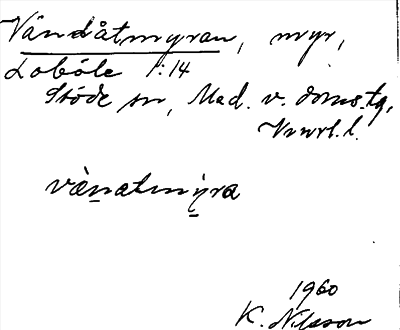 Vändåtmyran, myr,
Loböle 1:14
Stöde sn, Med. v. doms.tg,
Vnrl. l.
vænatmýra
1960
K. Nilsson